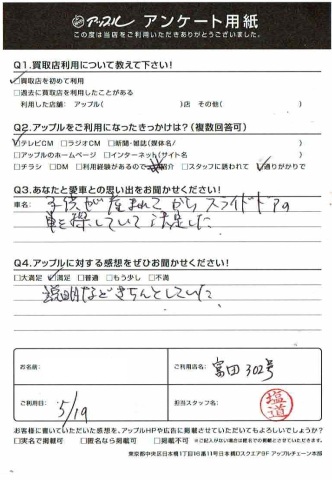 アップル アンケート用紙
この度は当店をご利用いただきありがとうございました。
Q1.買取店利用について教えて下さい!
✓□買取店を初めて利用
□過去に買取店を利用したことがある
利用した店舗: アップル( )店 その他( )
Q2.アップルをご利用になったきっかけは?(複数回答可)
✓□テレビCM □ラジオCM □新聞・雑誌(媒体名/ )
□アップルのホームページ □インターネット(サイト名 )
□チラシ □DM □利用経験があるので 紹介 □スタッフに誘われて ✓□通りがかりで
Q3.あなたと愛車との思い出をお聞かせください!
車名: 子供が産まれてから スライドドアの
車を探していて決定した
Q4.アップルに対する感想をぜひお聞かせください!
□大満足 ✓□満足 □普通 □もう少し □不満
説明などきちんとしていた
お名前:
ご利用店名: 富田302号
ご利用日: 5/19
担当スタッフ名: 塩道
お客様に書いていただいた感想を、アップルHPや広告に掲載させていただいてもよろしいでしょうか?
□実名で掲載可 □匿名なら掲載可 □掲載不可 ※ご記入がない場合は匿名での掲載とさせていただきます。
東京都中央区日本橋1丁目16番11号日本橋Dスクエア9F アップルチェーン本部